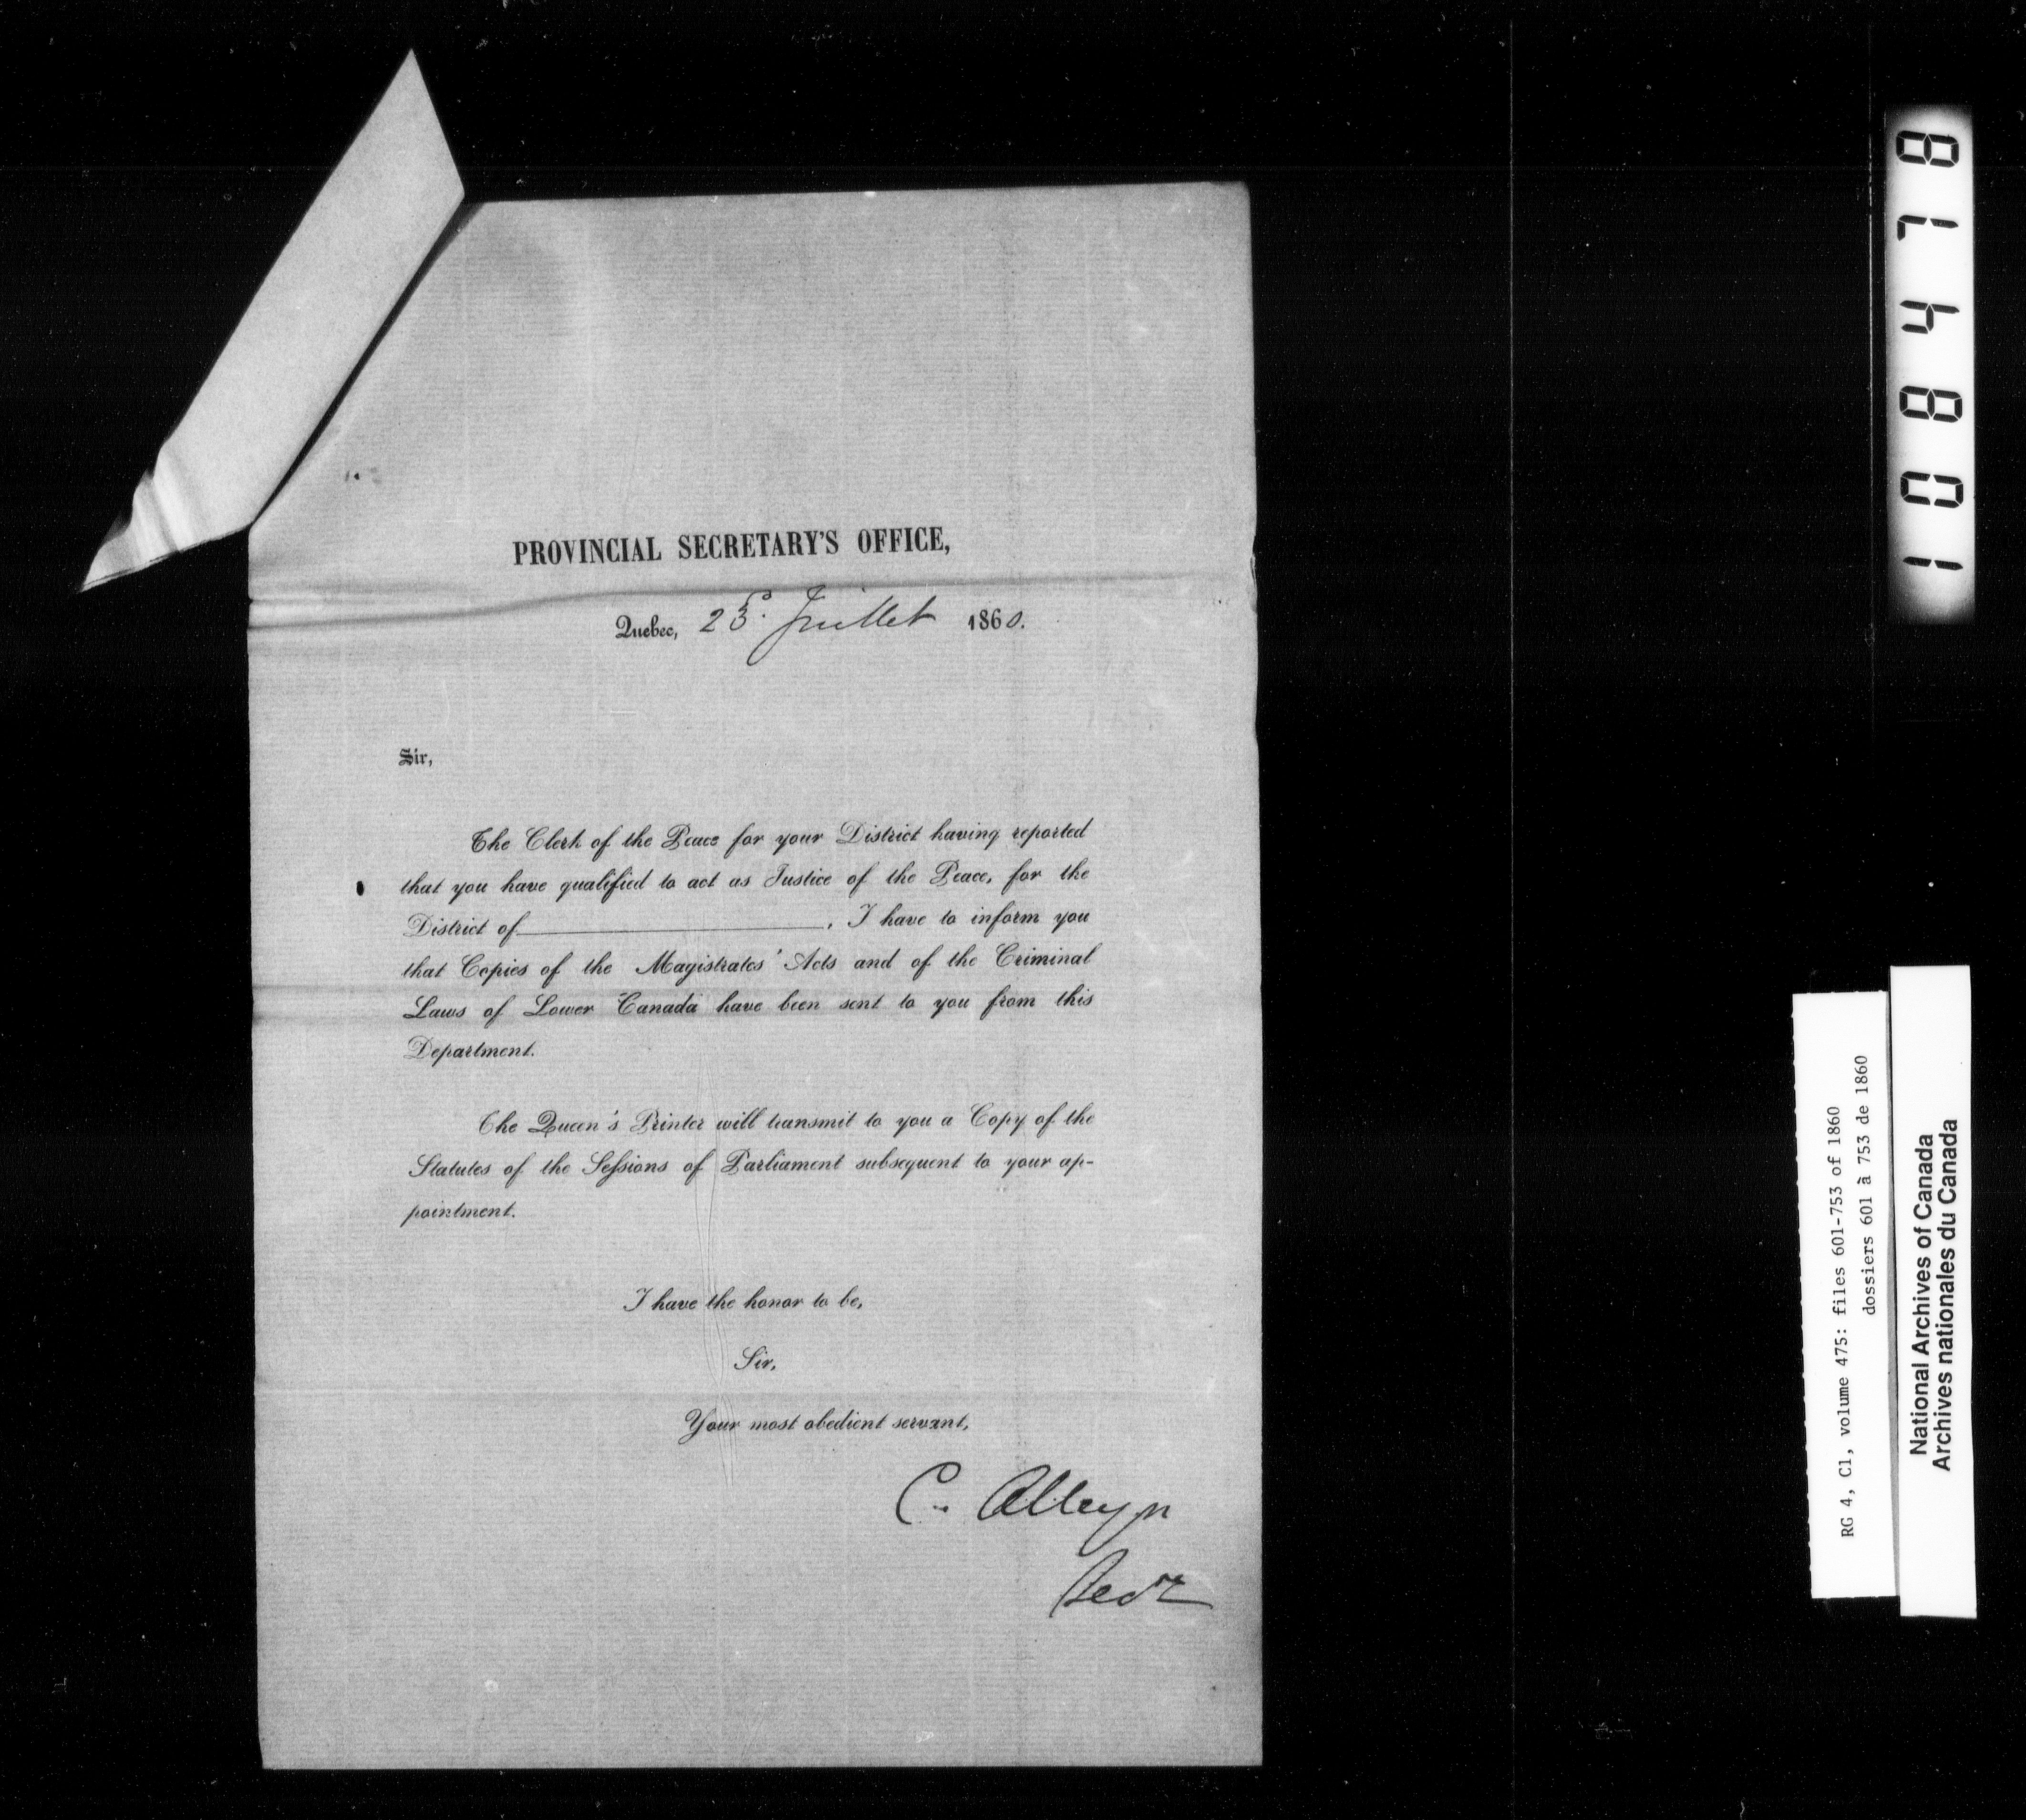 PROVINCIAL SECRETARY'S OFFICE,
Quebec, 23. Juillet 1860.
Sir,
The Clerk of the Peace for your District having reported
that you have qualified to act as Justice of the Peace, for the
District of , I have to inform you
that Copies of the Magistrates' Acts and of the Criminal
Laws of Lower Canada have been sent to you from this
Department.
The Queen's Printer will transmit to you a Copy of the
Statutes of the Sessions of Parliament subsequent to your ap-
pointment.
I have the honor to be,
Sir,
Your most obedient servant,
C. Alleyn
Secr
108478
RG 4, C1, volume 475: files 601-753 of 1860
dossiers 601 à 753 de 1860
National Archives of Canada
Archives nationales du Canada